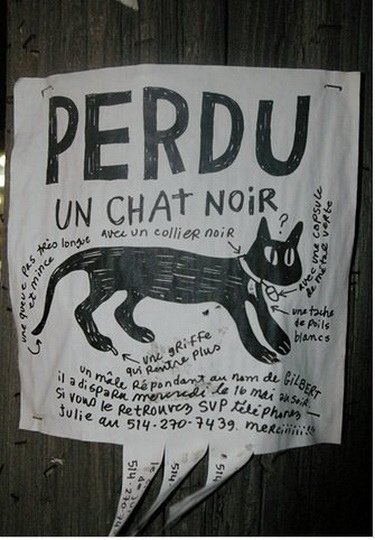 PERDU
UN CHAT NOIR
avec un collier noir
?
une queue pas très longue
et mince
avec une capsule
de métal verte
une tache
de poils
blancs
une griffe
qui rentre plus
un mâle répondant au nom de GILBERT
il a disparu mercredi le 16 mai au soir
si vous le retrouvez SVP téléphonez
Julie au 514-270-7439. merciiiiii!!!
514
514
514-270-74